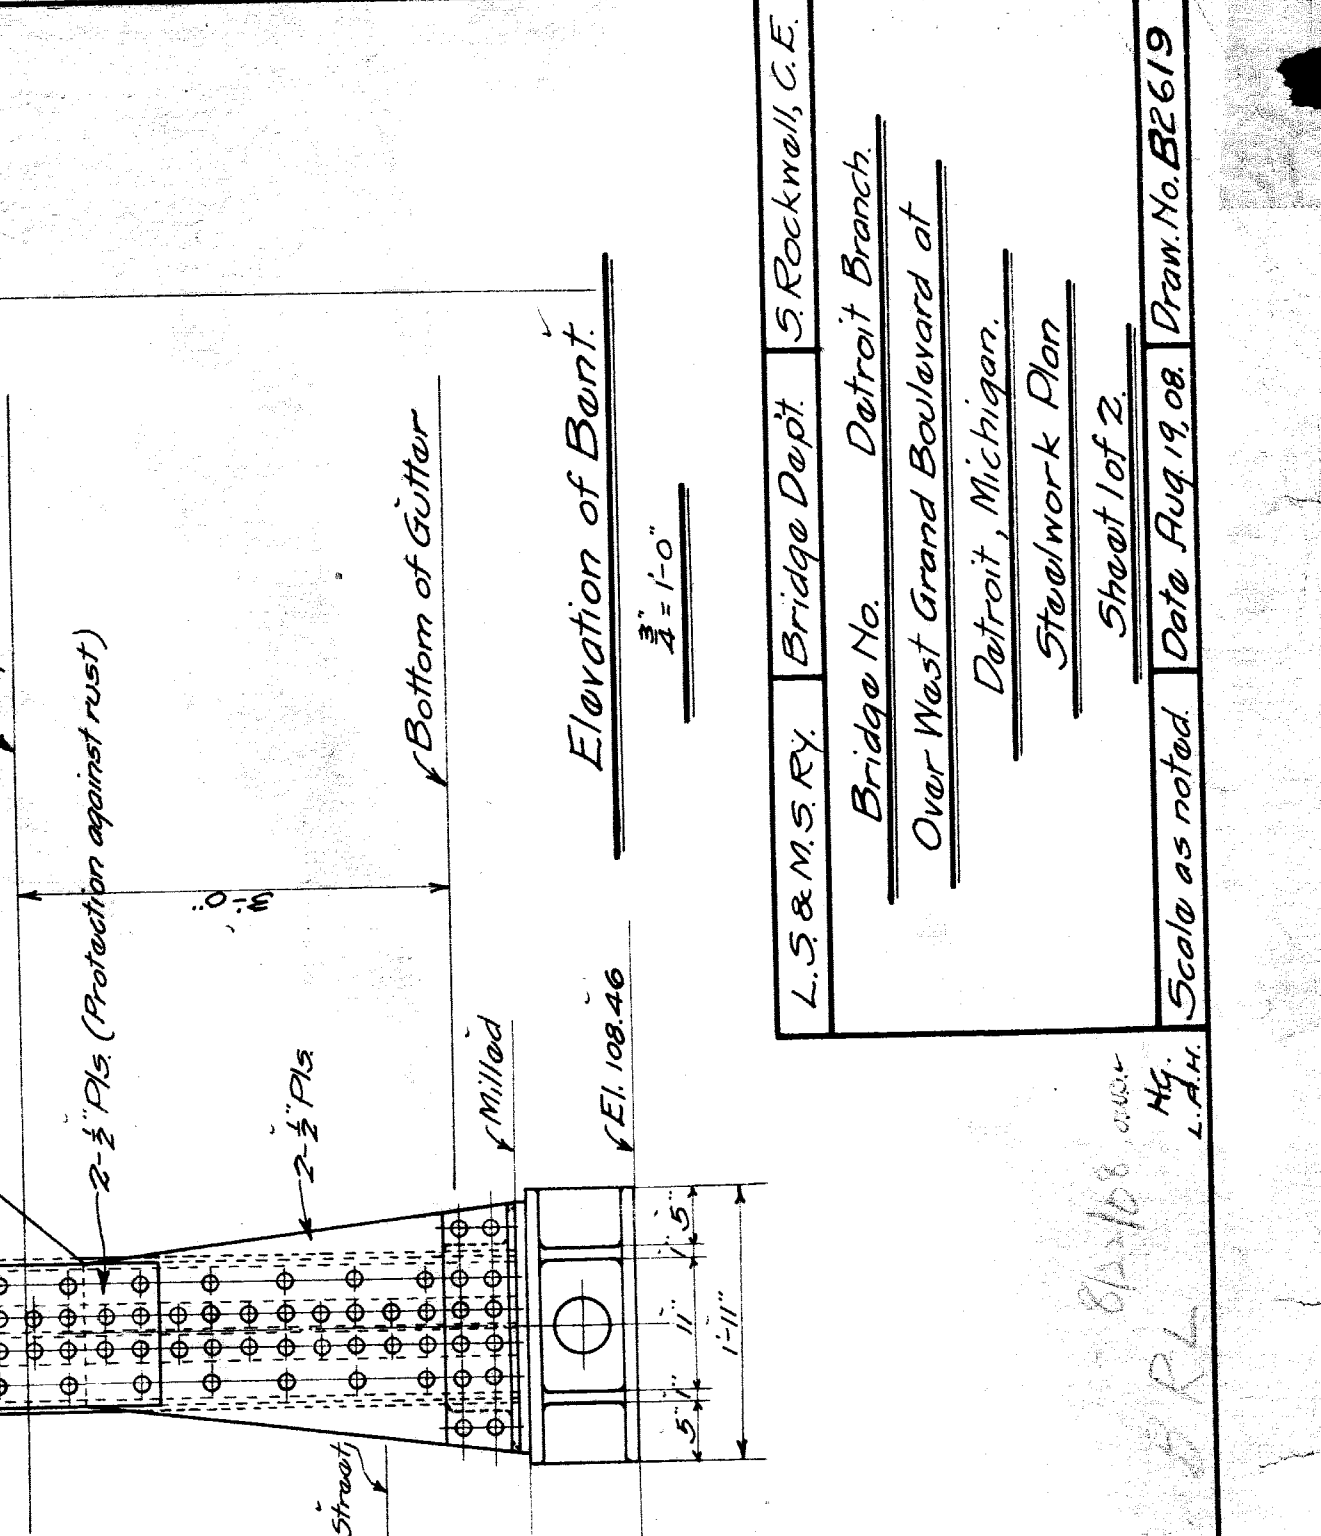 2-½" Pls. (Protection against rust)
3'-0"
2-½" Pls.
Bottom of Gutter
Milled
El. 108.46
Street
5" 1" 11" 1" 5"
1'-11"
Elevation of Bent.
¾" = 1'-0"
L. S. & M. S. Ry. Bridge Dep't. S. Rockwell, C. E.
Bridge No. Detroit Branch.
Over West Grand Boulevard at
Detroit, Michigan.
Steelwork Plan
Sheet 1 of 2.
Scale as noted. Date Aug. 19, 08. Draw. No. B2619
HG.
L.A.H.
8/22/08
RL